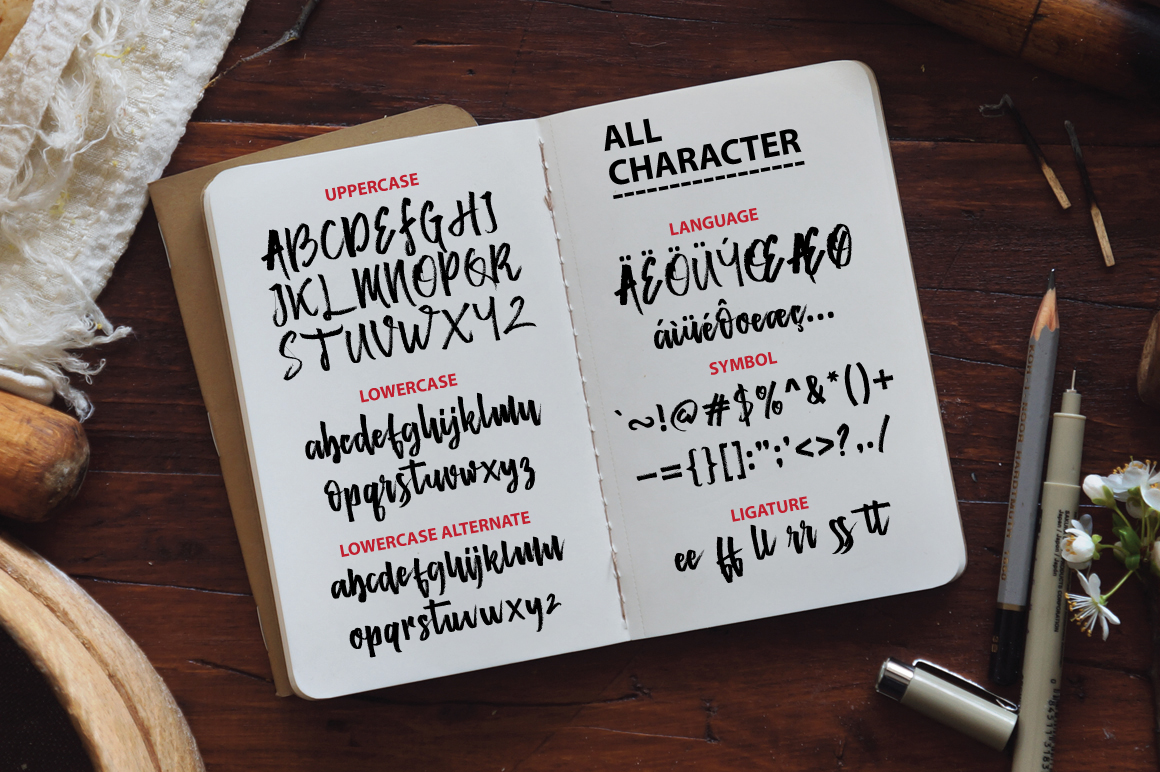 UPPERCASE
ABCDEFGHI
JKLMNOPQR
STUVWXYZ
LOWERCASE
abcdefghijklmn
opqrstuvwxyz
LOWERCASE ALTERNATE
abcdefghijklmn
opqrstuvwxyz
ALL
CHARACTER
LANGUAGE
ÄËÖÜÝŒÆØ
áìüéÔoeæç...
SYMBOL
`~!@#$%^&*()+
–={}[]:";'<>?,./
LIGATURE
ee ff ll rr ss tt